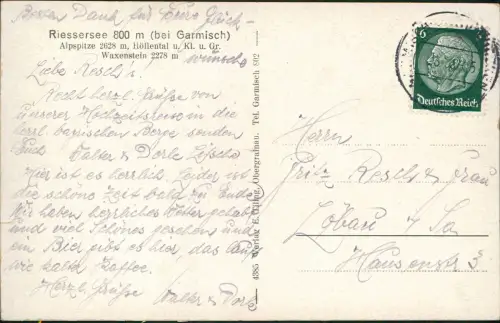 Besten Dank für Eure Glück-
wünsche
Riessersee 800 m (bei Garmisch)
Alpspitze 2628 m, Höllental u. Kl. u. Gr.
Waxenstein 2278 m
Liebe Resch's!
Recht herzl. Grüße von
unserer Hochzeitsreise in die
herrl. bayrischen Berge senden
Euch Walter & Dorle
Hier ist es herrlich, leider ist
die schöne Zeit bald zu Ende.
Wir haben herrliches Wetter gehabt
und viel Schönes gesehen und
ein Bier gibt es hier, das
wie kalter Kaffee.
Herzl. Grüße
Walter & Dorle
4385 Verlag E. Obergrainau. Tel. Garmisch 892
6
Deutsches Reich
Herrn
Fritz Resch & Frau
Löbau i/Sa
3